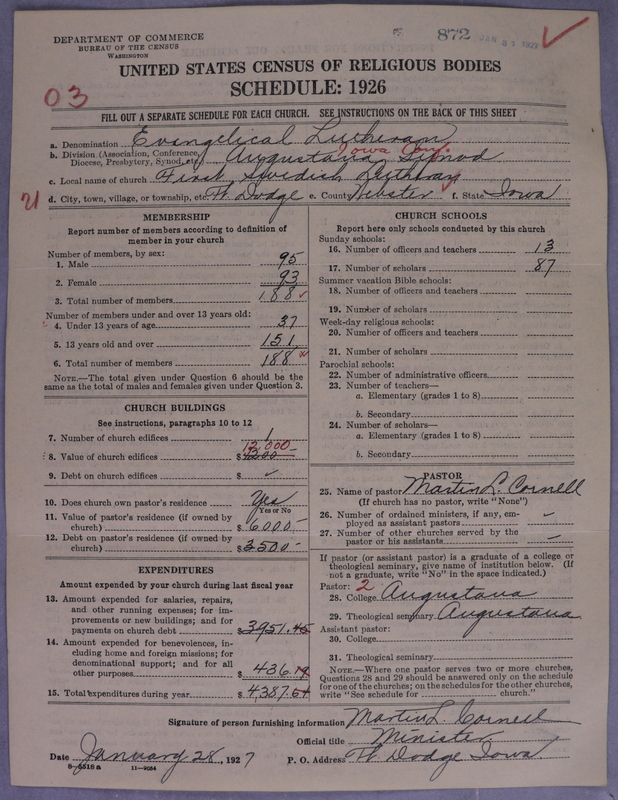 DEPARTMENT OF COMMERCE
BUREAU OF THE CENSUS
WASHINGTON
872 JAN 31 1927
UNITED STATES CENSUS OF RELIGIOUS BODIES
SCHEDULE: 1926
03
FILL OUT A SEPARATE SCHEDULE FOR EACH CHURCH. SEE INSTRUCTIONS ON THE BACK OF THIS SHEET
a. Denomination Evangelical Lutheran
b. Division (Association, Conference, Iowa Conf.
Diocese, Presbytery, Synod, etc) Augustana Synod
c. Local name of church First Swedish Lutheran
21 d. City, town, village, or township, etc. Ft. Dodge e. County Webster f. State Iowa
MEMBERSHIP
Report number of members according to definition of
member in your church
Number of members, by sex:
1. Male 95
2. Female 93
3. Total number of members 188
Number of members under and over 13 years old:
4. Under 13 years of age 37
5. 13 years old and over 151
6. Total number of members 188
NOTE.—The total given under Question 6 should be the
same as the total of males and females given under Question 3.
CHURCH BUILDINGS
See instructions, paragraphs 10 to 12
7. Number of church edifices 1
12,000—
8. Value of church edifices $
9. Debt on church edifices $
10. Does church own pastor's residence Yes
Yes or No
11. Value of pastor's residence (if owned by
church) $6000.—
12. Debt on pastor's residence (if owned by
church) $3500.—
EXPENDITURES
Amount expended by your church during last fiscal year
13. Amount expended for salaries, repairs,
and other running expenses; for im-
provements or new buildings; and for
payments on church debt $3951.45
14. Amount expended for benevolences, in-
cluding home and foreign missions; for
denominational support; and for all
other purposes $436.19
15. Total expenditures during year $4387.64
CHURCH SCHOOLS
Report here only schools conducted by this church
Sunday schools:
16. Number of officers and teachers 13
17. Number of scholars 87
Summer vacation Bible schools:
18. Number of officers and teachers
19. Number of scholars
Week-day religious schools:
20. Number of officers and teachers
21. Number of scholars
Parochial schools:
22. Number of administrative officers
23. Number of teachers—
a. Elementary (grades 1 to 8)
b. Secondary
24. Number of scholars—
a. Elementary (grades 1 to 8)
b. Secondary
PASTOR
25. Name of pastor Martin L. Cornell
(If church has no pastor, write "None")
26. Number of ordained ministers, if any, em-
ployed as assistant pastors —
27. Number of other churches served by the
pastor or his assistants —
If pastor (or assistant pastor) is a graduate of a college or
theological seminary, give name of institution below. (If
not a graduate, write "No" in the space indicated.)
Pastor: 2
28. College Augustana
29. Theological seminary Augustana
Assistant pastor:
30. College
31. Theological seminary
NOTE.—Where one pastor serves two or more churches,
Questions 28 and 29 should be answered only on the schedule
for one of the churches; on the schedules for the other churches,
write "See schedule for church."
Signature of person furnishing information Martin L. Cornell
Official title Minister
Date January 28, 1927 P. O. Address Ft. Dodge Iowa
8—5516 a 11—9034